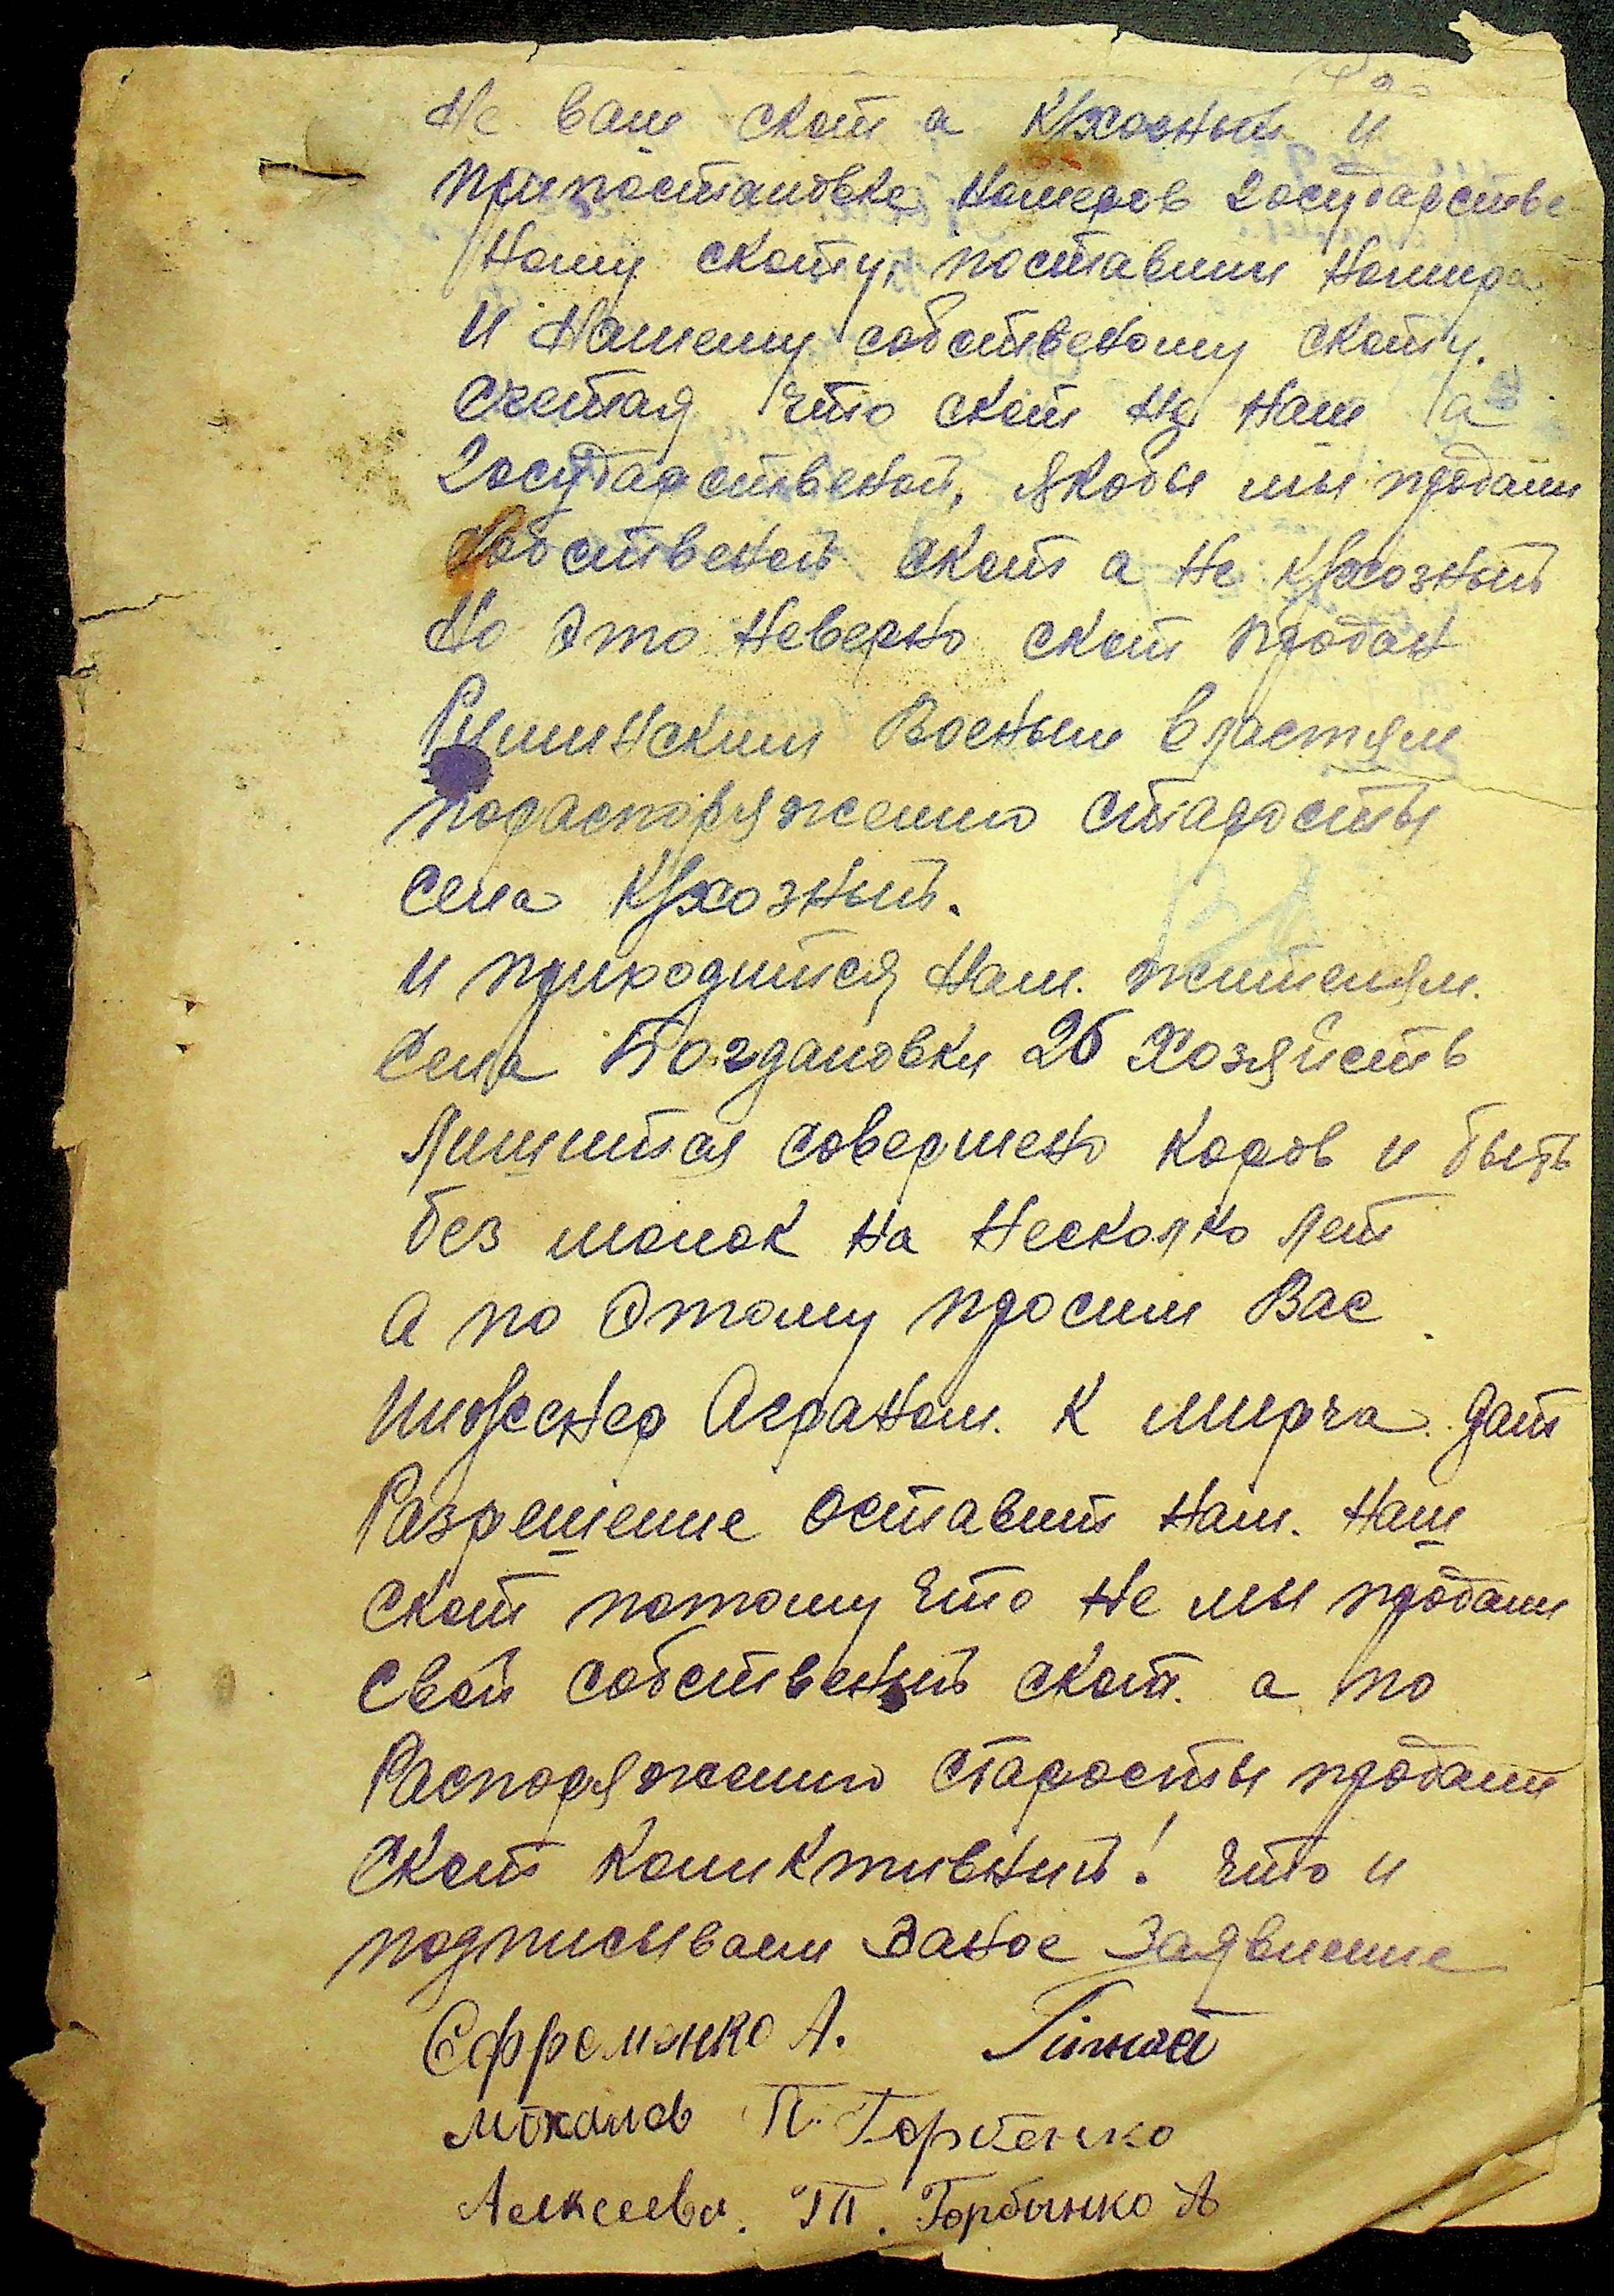 Не ваш скот а К/хозный и
припостановке номеров государстве
ному скоту, поставили номира
и Нашему собственому скоту.
Счетая что скот не наш а
государственой, якобы мы продали
собственой скот а не К/хозный
Но это неверно скот продан
Руминским Военым властям
пораспоряжению старосты
села К/хозный.
и приходится нам. жителям.
Села Богдановки 26 Хозяйств
Лишится совершено коров и быть
без молок на несколко лет
а по Этому просим Вас
Инженер Аграном. К мирча. дат
Разрешение оставит нам. наш
скот потому что не мы продали
свой собственый скот. а по
Распоряжению старосты продали
скот коликтивный! что и
подписываем даное Заявление
Ефременко А.
Мокалов П. Горбенко
Алексеева. П. Горбынко А